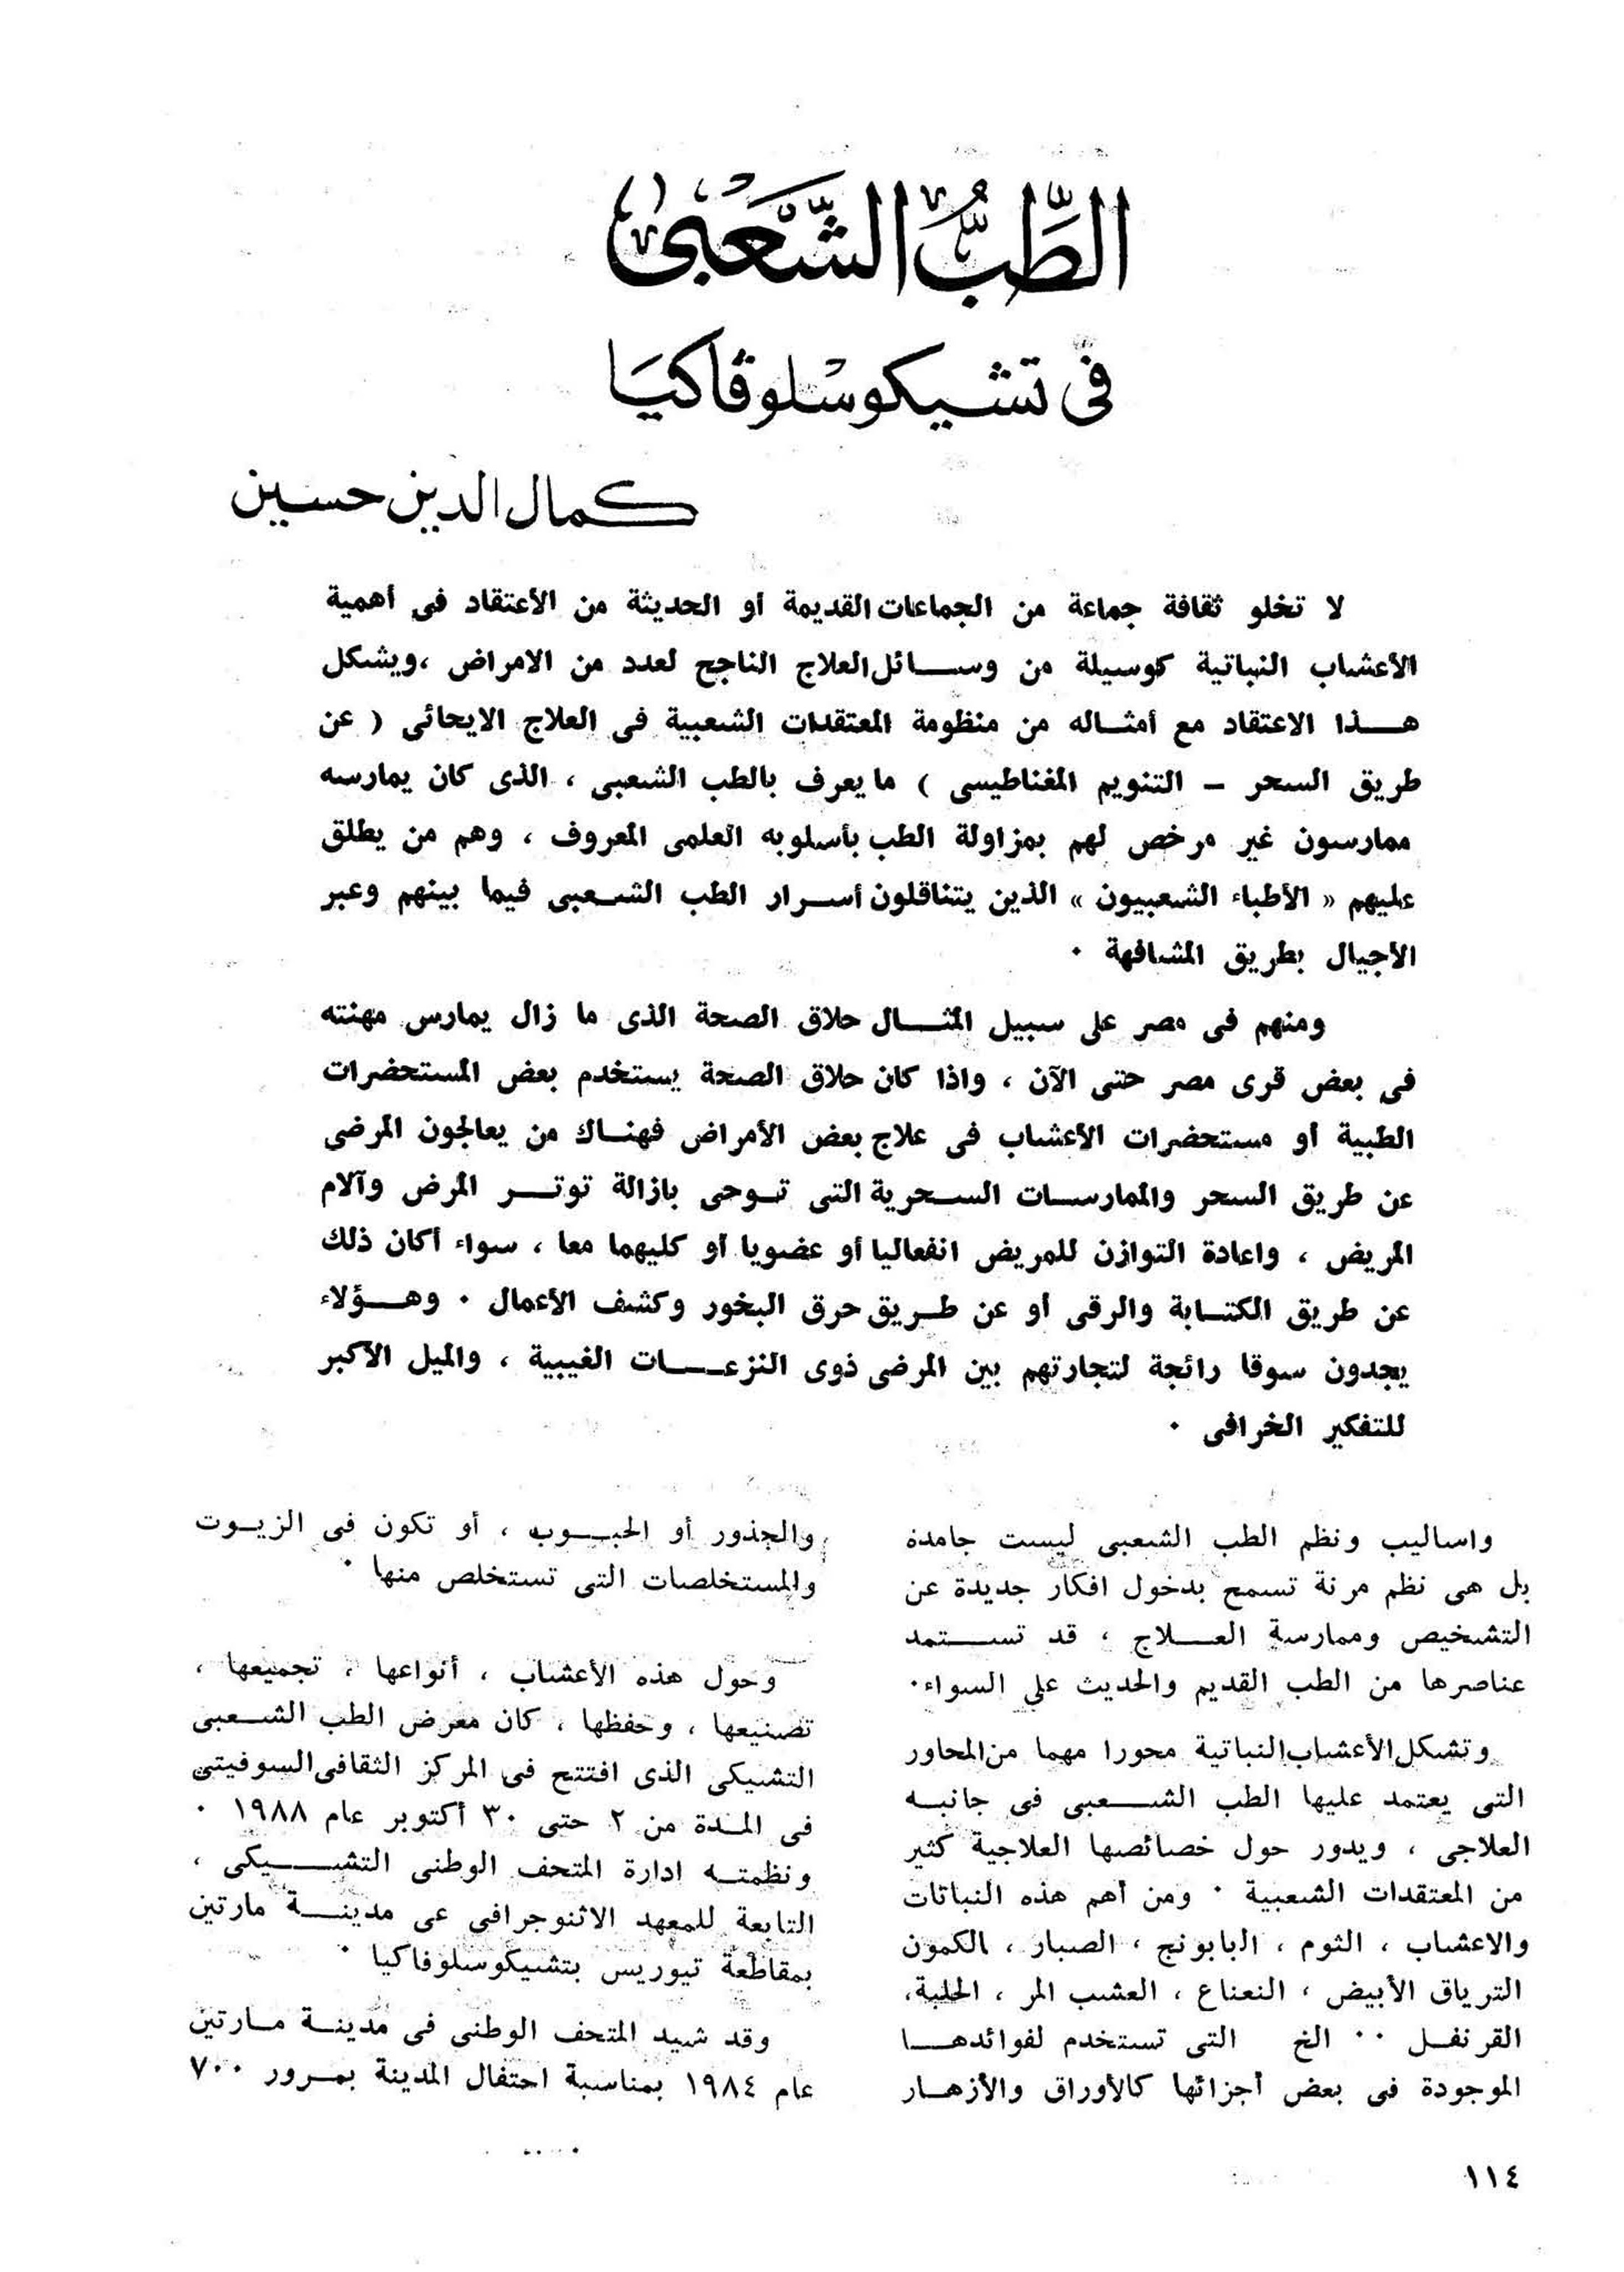 الطِّبُّ الشَّعْبى
فى تشيكوسْلوڤاكيَا
كمال الدين حسين
لا تخلو ثقافة جماعة من الجماعات القديمة أو الحديثة من الأعتقاد فى أهمية
الأعشاب النباتية كوسيلة من وسائل العلاج الناجح لعدد من الامراض ، ويشكل
هذا الاعتقاد مع أمثاله من منظومة المعتقدات الشعبية فى العلاج الايحائى ( عن
طريق السحر – التنويم المغناطيسى ) ما يعرف بالطب الشعبى ، الذى كان يمارسه
ممارسون غير مرخص لهم بمزاولة الطب بأسلوبه العلمى المعروف ، وهم من يطلق
عليهم « الأطباء الشعبيون » الذين يتناقلون أسرار الطب الشعبى فيما بينهم وعبر
الأجيال بطريق المشافهة ٠
ومنهم فى مصر على سبيل المثال حلاق الصحة الذى ما زال يمارس مهنته
فى بعض قرى مصر حتى الآن ، واذا كان حلاق الصحة يستخدم بعض المستحضرات
الطبية أو مستحضرات الأعشاب فى علاج بعض الأمراض فهناك من يعالجون المرضى
عن طريق السحر والممارسات السحرية التى توحى بازالة توتر المرض وآلام
المريض ، واعادة التوازن للمريض انفعاليا أو عضويا أو كليهما معا ، سواء أكان ذلك
عن طريق الكتابة والرقى أو عن طريق حرق البخور وكشف الأعمال ٠ وهؤلاء
يجدون سوقا رائجة لتجارتهم بين المرضى ذوى النزعات الغيبية ، والميل الأكبر
للتفكير الخرافى ٠
واساليب ونظم الطب الشعبى ليست جامدة
بل هى نظم مرنة تسمح بدخول افكار جديدة عن
التشخيص وممارسة العلاج ، قد تستمد
عناصرها من الطب القديم والحديث على السواء٠
وتشكل الأعشاب النباتية محورا مهما من المحاور
التى يعتمد عليها الطب الشعبى فى جانبه
العلاجى ، ويدور حول خصائصها العلاجية كثير
من المعتقدات الشعبية ٠ ومن أهم هذه النباتات
والاعشاب ، الثوم ، البابونج ، الصبار ، الكمون
الترياق الأبيض ، النعناع ، العشب المر ، الحلبة،
القرنفل ٠٠ الخ التى تستخدم لفوائدها
الموجودة فى بعض أجزائها كالأوراق والأزهار
والجذور أو الحبوب ، أو تكون فى الزيوت
والمستخلصات التى تستخلص منها ٠
وحول هذه الأعشاب ، أنواعها ، تجميعها ،
تصنيعها ، وحفظها ، كان معرض الطب الشعبى
التشيكى الذى افتتح فى المركز الثقافى السوفيتى
فى المدة من ٢ حتى ٣٠ أكتوبر عام ١٩٨٨ ٠
ونظمته ادارة المتحف الوطنى التشيكى ،
التابعة للمعهد الاثنوجرافى عى مدينة مارتين
بمقاطعة تيوريس بتشيكوسلوفاكيا ٠
وقد شيد المتحف الوطنى فى مدينة مارتين
عام ١٩٨٤ بمناسبة احتفال المدينة بمرور ٧٠٠
١١٤